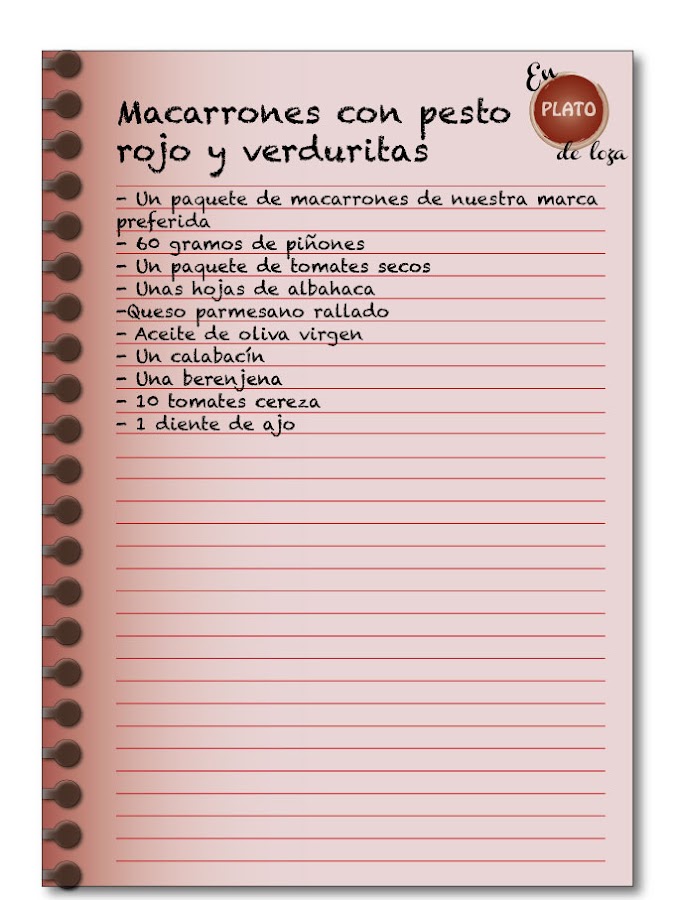 En
PLATO
de loza
Macarrones con pesto
rojo y verduritas
- Un paquete de macarrones de nuestra marca
preferida
- 60 gramos de piñones
- Un paquete de tomates secos
- Unas hojas de albahaca
-Queso parmesano rallado
- Aceite de oliva virgen
- Un calabacín
- Una berenjena
- 10 tomates cereza
- 1 diente de ajo